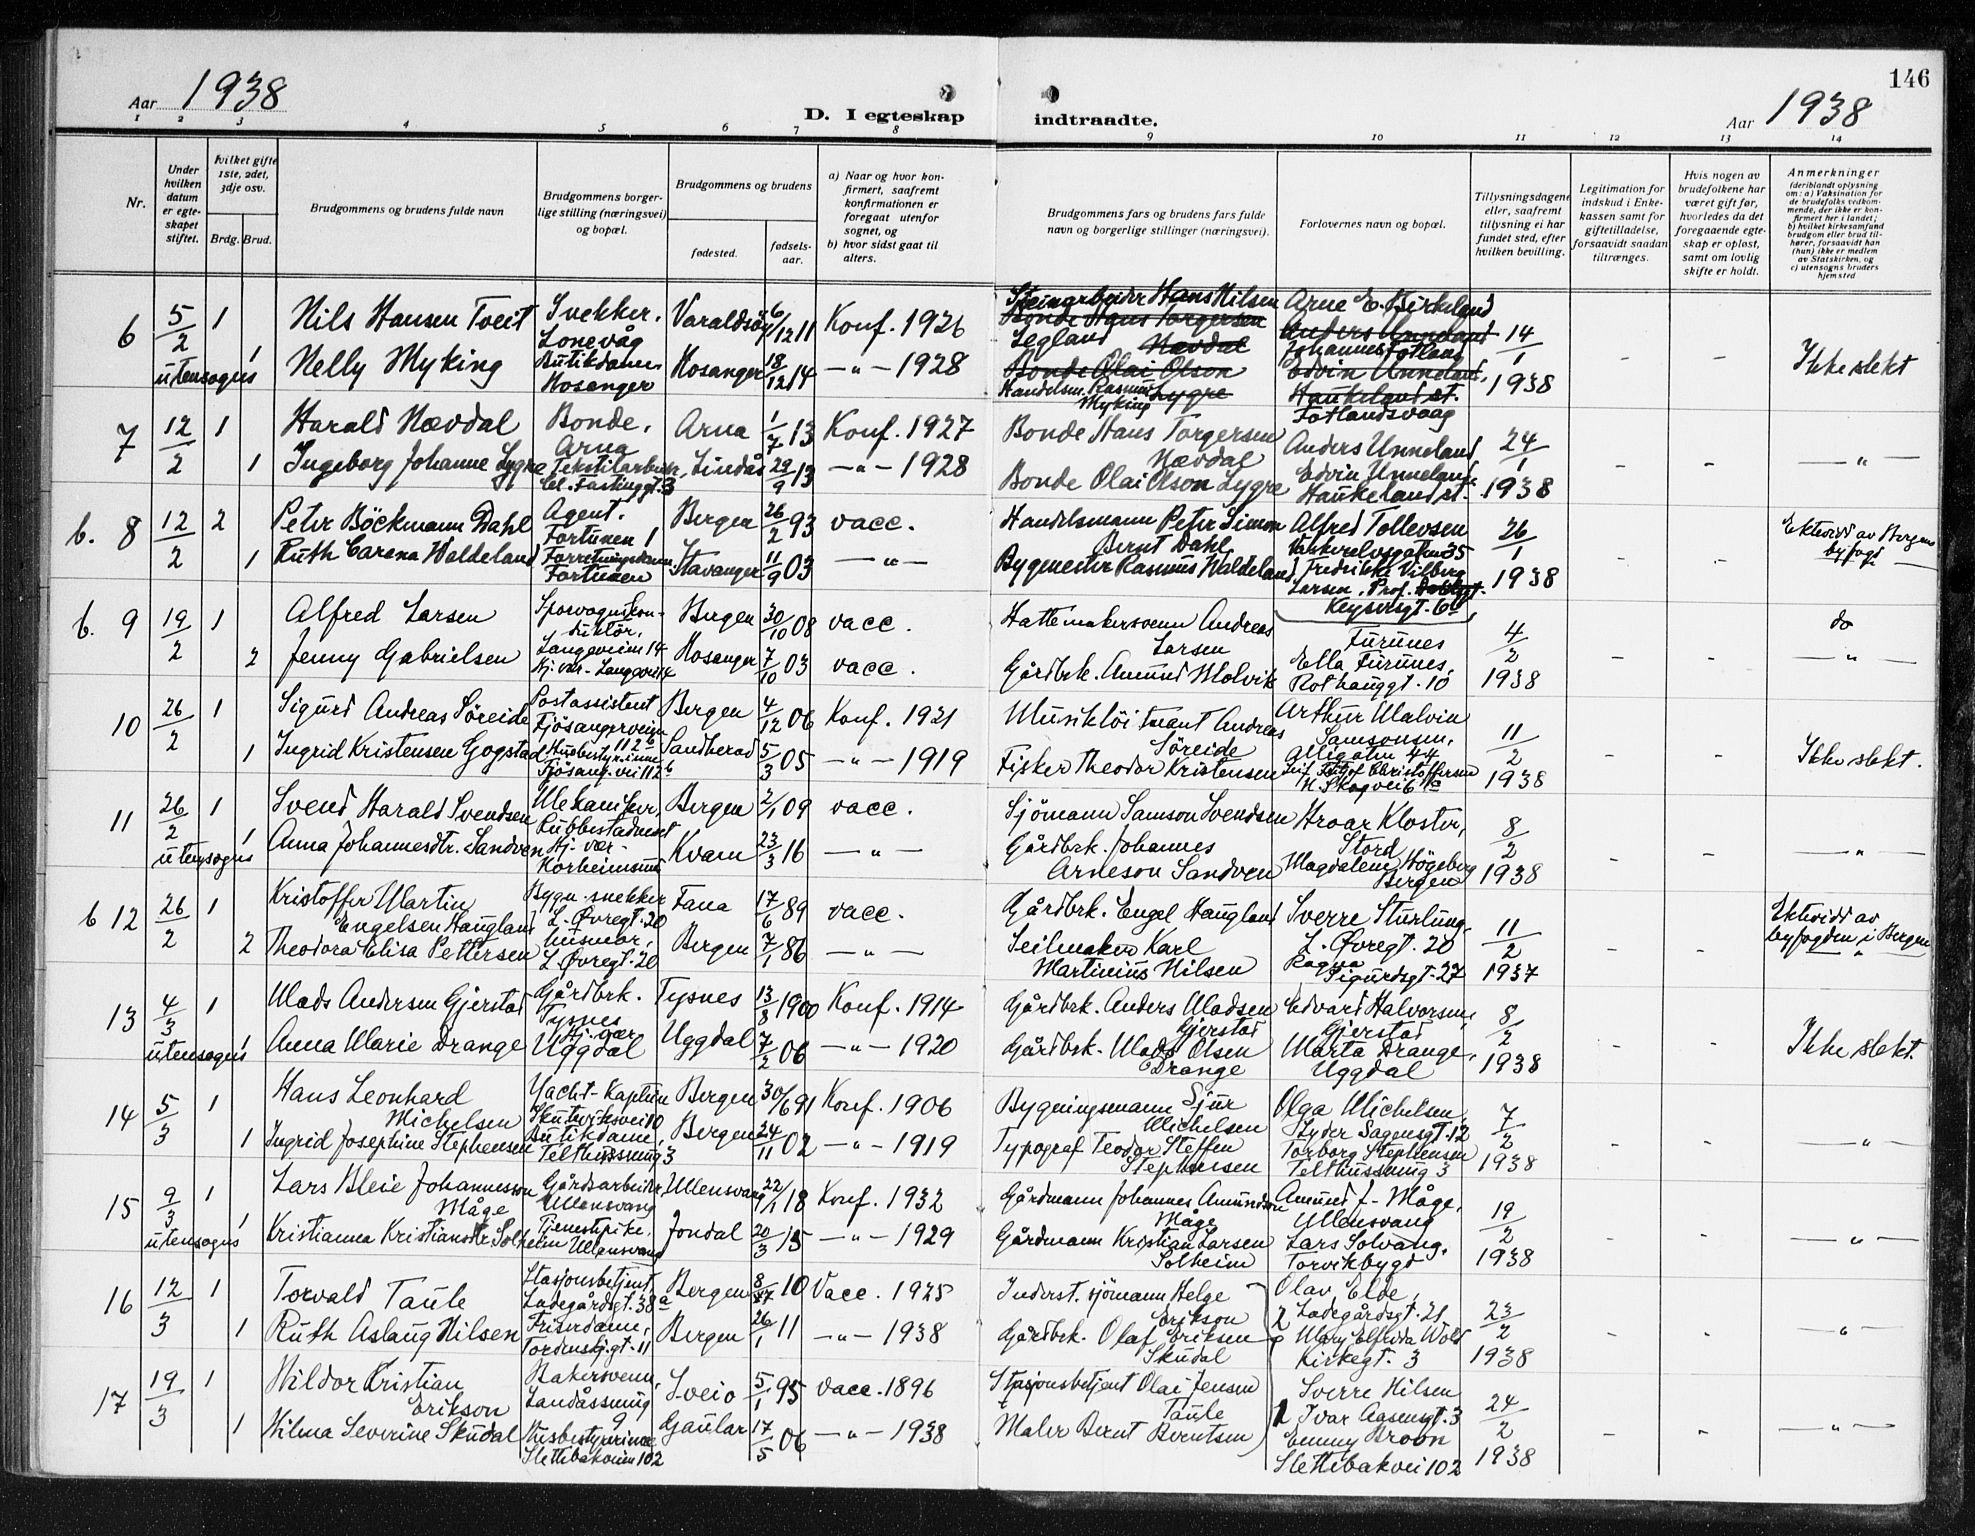 146
Aar 1938
D. I egteskap indtraadte.
Aar 1938
1 2 3 4 5 6 7 8 9 10 11 12 13 14
Nr.
Under hvilken datum er egteskapet stiftet.
hvilket gifte 1ste, 2det, 3dje osv.
Brdg. Brud.
Brudgommens og brudens fulde navn
Brudgommens borgerlige stilling (næringsvei) og bopæl.
Brudgommens og brudens
fødested.
fødselsaar.
a) Naar og hvor konfirmert, saafremt konfirmationen er foregaat utenfor sognet, og
b) hvor sidst gaat til alters.
Brudgommens fars og brudens fars fulde navn og borgerlige stillinger (næringsvei).
Forlovernes navn og bopæl.
Tillysningsdagene eller, saafremt tillysning ei har fundet sted, efter hvilken bevilling.
Legitimation for indskud i Enkekassen samt for giftetilladelse, forsaavidt saadan tiltrænges.
Hvis nogen av brudefolkene har været gift før, hvorledes da det foregaaende egteskap er opløst, samt om lovlig skifte er holdt.
Anmerkninger
(deriblandt oplysning om: a) Vaksination for de brudefolks vedkommende, der ikke er konfirmert her i landet; b) hvilket kirkesamfund brudgom eller brud tilhører, forsaavidt han (hun) ikke er medlem av Statskirken, og c) utensogns bruders hjemsted
6 5/2 1 Nils Hansen Tveit Snekker, Lonevåg Varaldsöy 6/12 11 Konf. 1926 Steinarbeider Hans Nilsen Legland Arne E. Birkeland 14/1 1938 - -
Bonde Hans Torgersen Nævdal Anders Unneland
utensogns 1 Nelly Myking Butikdame, Hosanger Hosanger 18/12 14 -"- 1928 Handelsm. Rasmus Myking Johannes Fotland Fotlandsvaag Ikke slekt
Bonde Olai Olson Lygre Edvin Unneland, Haukeland st.
7 12/2 1 Harald Nævdal Bonde, Arna Arna 1/7 13 Konf. 1927 Bonde Hans Torgersen Nævdal Anders Unneland 24/1 1938 - -
1 Ingeborg Johanne Lygre Tekstilarbeid. Lindås 29/9 13 -"- 1928 Bonde Olai Olson Lygre Edvin Unneland Haukeland st. -"-
b. 8 12/2 2 Peter Böckmann Dahl Agent. Fortunen 1 Bergen 26/2 93 vacc. Handelsmann Peter Simon Bernt Dahl Alfred Tollevsen 26/1 1938 Ektevidd av Bergens byfogd
1 Ruth Carena Waldeland Fortunen Stavanger 11/9 03 -"- Bygmester Rasmus Waldeland Fredrikke Vilberg Larsen, Prof. Keysersgt. 6
b. 9 19/2 1 Alfred Larsen Sporvognskonduktör, Langeveien 14 Bergen 30/10 08 vacc. Hattemakersvenn Andreas Larsen Furunes 4/2 1938 do
2 Jenny Gabrielsen Hj.vær. Langevei 14 Hosanger 7/10 03 vacc. Gårdbrk. Amund Molvik Ella Furunes, Rothauggt. 10 -"-
10 26/2 1 Sigurd Andreas Söreide Postassistent Fjösangerveien 112 b Bergen 4/12 06 Konf. 1921 Musiklöitnant Andreas Söreide Arthur Malvin Samsonsen, 11/2 1938
1 Ingrid Kristensen Gogstad Husbestyrerinne Fjösang.vei 112 b Sandherad 5/3 05 -"- 1919 Fisker Theodor Kristensen Christoffersen Ikke slekt.
11 26/2 1 Svend Harald Svendsen Mekaniker, Rubbestadneset Bergen 2/1 09 vacc. Sjömann Samson Svendsen Hroar Kloster, Stord 8/2 1938
utensogns 1 Anna Johannesdtr. Sandven Hj.vær. Norheimsund Kvam 23/3 16 -"- Gårdbrk. Johannes Arneson Sandven Magdalene Högeberg Bergen -"-
b 12 26/2 1 Kristoffer Martin Engelsen Haugland Bygn.snekker L. Øvregt. 20 Fana 17/6 89 vacc. Gårdbrk. Engel Haugland Sverre Sturlung. L. Øvregt. 20 11/2 1937 Ektevidd av byfogden i Bergen
2 Theodora Elisa Pettersen husmor, L. Øvregt. 20 Bergen 7/1 86 -"- Seilmaker Karl Martinius Nilsen Ragna Sigurdsgt. 27
13 4/3 1 Mads Andersen Gjerstad Gårdbrk. Tysnes Tysnes 13/8 1900 Konf. 1914 Gårdbrk. Anders Madsen Gjerstad Edvard Halvorsen, Gjerstad 8/2 1938
utensogns 1 Anna Marie Drange Hj.vær Uggdal Uggdal 7/2 06 -"- 1920 Gårdbrk. Mads Olsen Drange Marta Drange, Uggdal Ikke slekt.
14 5/3 1 Hans Leonhard Michelsen Yacht-Kaptein Skuteviksvei 10 Bergen 30/6 91 Konf. 1906 Bygningsmann Sjur Michelsen Olga Michelsen, Lyder Sagensgt. 12 7/2 1938
1 Ingrid Josephine Stephensen Butikdame, Telthussmug 3 Bergen 24/11 02 -"- 1919 Typograf Teodor Steffen Stephensen Torborg Stephensen Telthussmug 3 -"-
15 9/3 1 Lars Bleie Johannesson Måge Gårdsarbeider, Ullensvang Ullensvang 22/1 18 Konf. 1932 Gårdmann Johannes Amundson Måge Amund J. Måge, Ullensvang 19/2 1938
utensogns 1 Kristianna Kristiansdtr Solheim Tjenestepike, Ullensvand Jondal 20/3 15 -"- 1929 Gårdmann Kristian Larsen Solheim Lars Solvang, Torvikbygd -"-
16 12/3 1 Torvald Taule Stasjonsbetjent, Ladegårdsgt. 38a Bergen 8/7 10 Vacc. 1925 Inderst. sjömann Helge Erikson Olav Elde, Ladegårdsgt. 21 23/2 1938
1 Ruth Aslaug Nilsen Friserdame, Tordenskj.gt. 11 Bergen 26/1 11 -"- 1938 Gårdbrk. Olaf Eriksen Skudal 2 Mary Elfrida Wold Kirkegt. 3 -"-
17 19/3 1 Hildor Kristian Erikson Bakersvenn, Landåssmug 9 Sveio 5/1 95 vacc. 1896 Stasjonsbetjent Olai Jensen Taule Sverre Nilsen Ivar Aasensgt. 3 24/2 1938
1 Hilma Severine Skudal Husbestyrerinne Slettebakveien 102 Gaular 17/5 06 -"- 1938 Maler Bernt Berntsen 1 Emmy Broon Slettebakvei 102 -"-